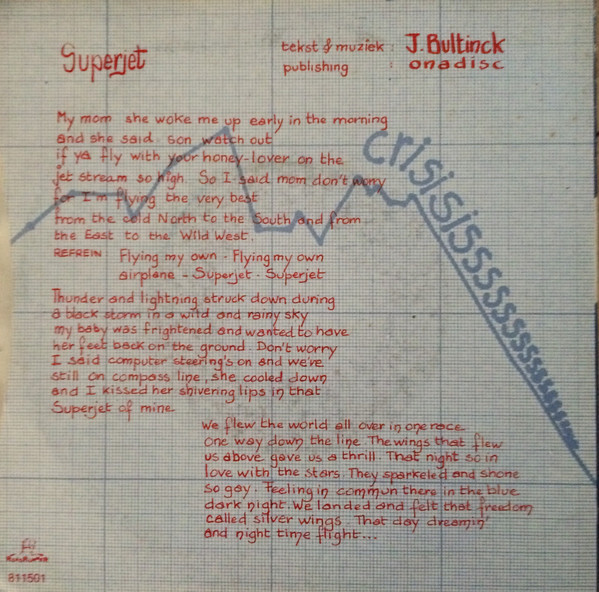 Superjet
tekst & muziek : J. Bultinck
publishing : onadisc
My mom she woke me up early in the morning
and she said. son watch out
if ya fly with your honey-lover on the
jet stream so high. So I said mom don't worry
for I'm flying the very best
from the cold North to the South and from
the East to the Wild West.
REFREIN Flying my own - Flying my own
airplane - Superjet - Superjet
Thunder and lightning struck down during
a black storm in a wild and rainy sky
my baby was frightened and wanted to have
her feet back on the ground. Don't worry
I said computer steering's on and we're
still on compass line, she cooled down
and I kissed her shivering lips in that
Superjet of mine
crisisissssssssssssssssssss
We flew the world all over in one race
one way down the line. The wings that flew
us above gave us a thrill. That night so in
love with the stars. They sparkeled and shone
so gay. Feeling in commun there in the blue
dark night. We landed and felt that freedom
called silver wings. That day dreamin'
and night time flight...
811501